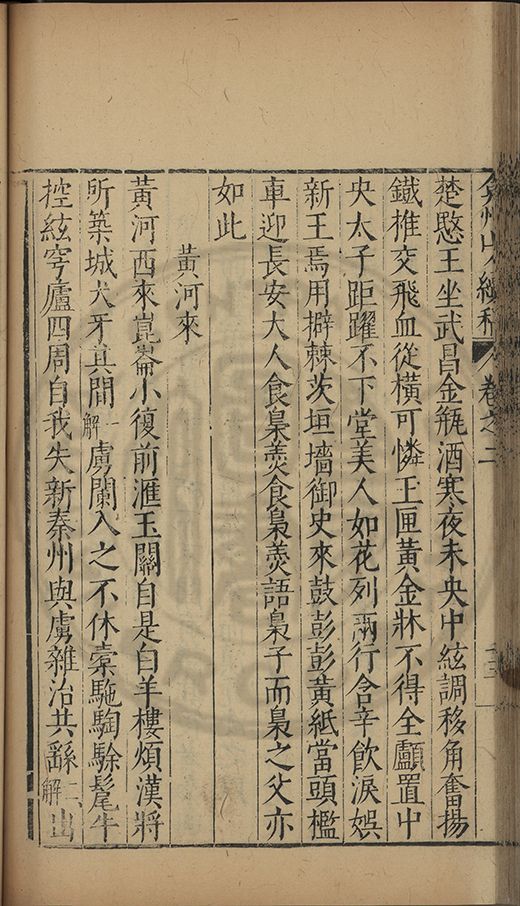 弇州山人續稿 卷之二
楚愍王坐武昌金瓶酒寒夜未央中絃調移角奮揚
鐵椎交飛血從橫可憐王匣黃金牀不得全顱置中
央太子距躍不下堂美人如花列兩行含辛飲淚娛
新王焉用擗棘茨垣墻御史來鼓彭彭黃紙當頭檻
車迎長安大人食梟羹食梟羹語梟子而梟之父亦
如此
黃河來
黃河西來崑崙小復前滙玉關自是白羊樓煩漢將
所築城犬牙其間一解虜闌入之不休橐駞騊駼髦牛
控絃穹廬四周自我失新秦州與虜雜治共繇二解出